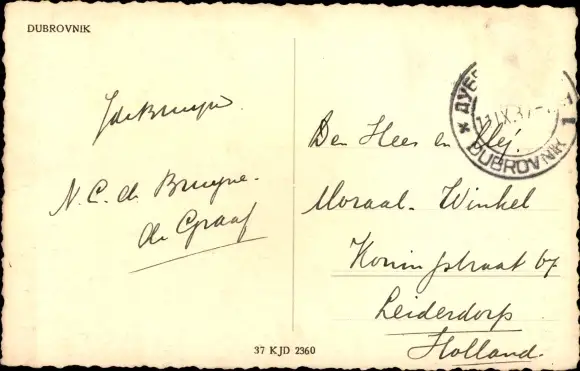 DUBROVNIK
J de Bruyne
N. C. de Bruyne-
de Graaf
Den Heer en Mej.
Moraal-Winkel
Koningstraat 67
Leiderdorp
Holland.
DUBROVNIK 1
37 KJD 2360